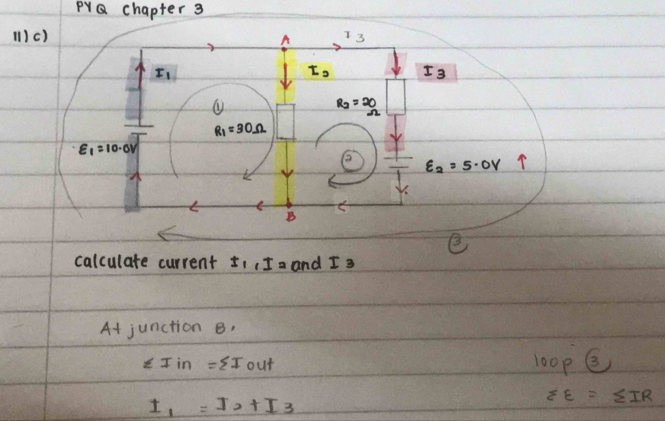 PYQ Chapter 3
11) c)
A
I3
I1
I2
I3
1
R1 = 30Ω
R2 = 20
Ω
2
ε1 = 10.0V
ε2 = 5.0V ↑
B
3
calculate current I1, I2 and I3
At junction B,
ΣI in = ΣI out
I1 = I2 + I3
loop 3
Σε = ΣIR